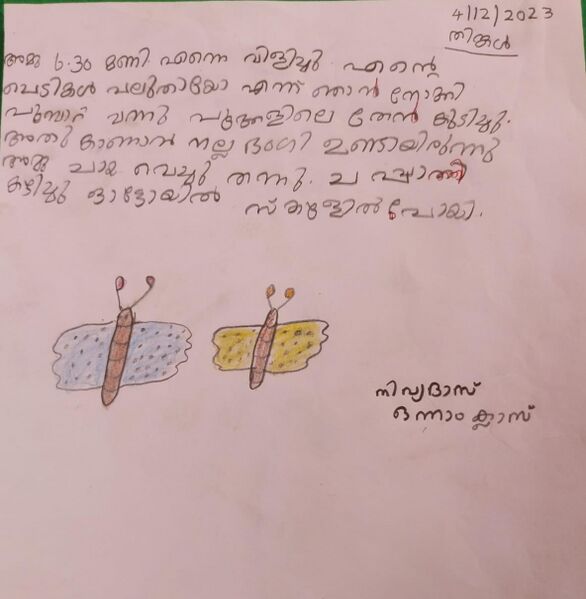 4/12/2023
തിങ്കൾ
അമ്മ 6.30 മണി എന്നെ വിളിച്ചു എന്റെ
ചെടികൾ വലുതായോ എന്ന് ഞാൻ നോക്കി
പൂമ്പാറ്റ വന്നു പൂക്കളിലെ തേൻ കുടിച്ചു.
അതു കാണാൻ നല്ല ഭംഗി ഉണ്ടായിരുന്നു
അമ്മ ചായ വെച്ചു തന്നു. ചപ്പാത്തി
കഴിച്ചു ഓട്ടോയിൽ സ്കൂളിൽ പോയി.
നിവ്യദാസ്
ഒന്നാം ക്ലാസ്